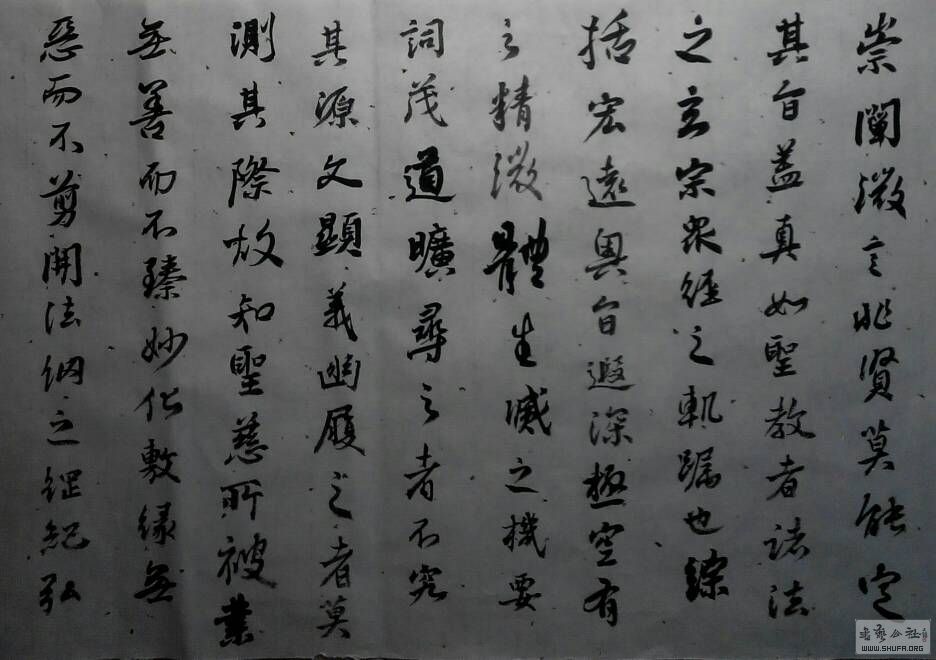 崇闡微言非賢莫能定
其旨盖真如聖教者諸法
之玄宗眾經之軌躅也綜
括宏遠奧旨遐深極空有
之精微體生滅之機要
詞茂道曠尋之者不究
其源文顯義幽履之者莫
測其際故知聖慈所被業
無善而不臻妙化敷緣無
惡而不剪開法網之綱紀弘
書藝公社
WWW.SHUFA.ORG